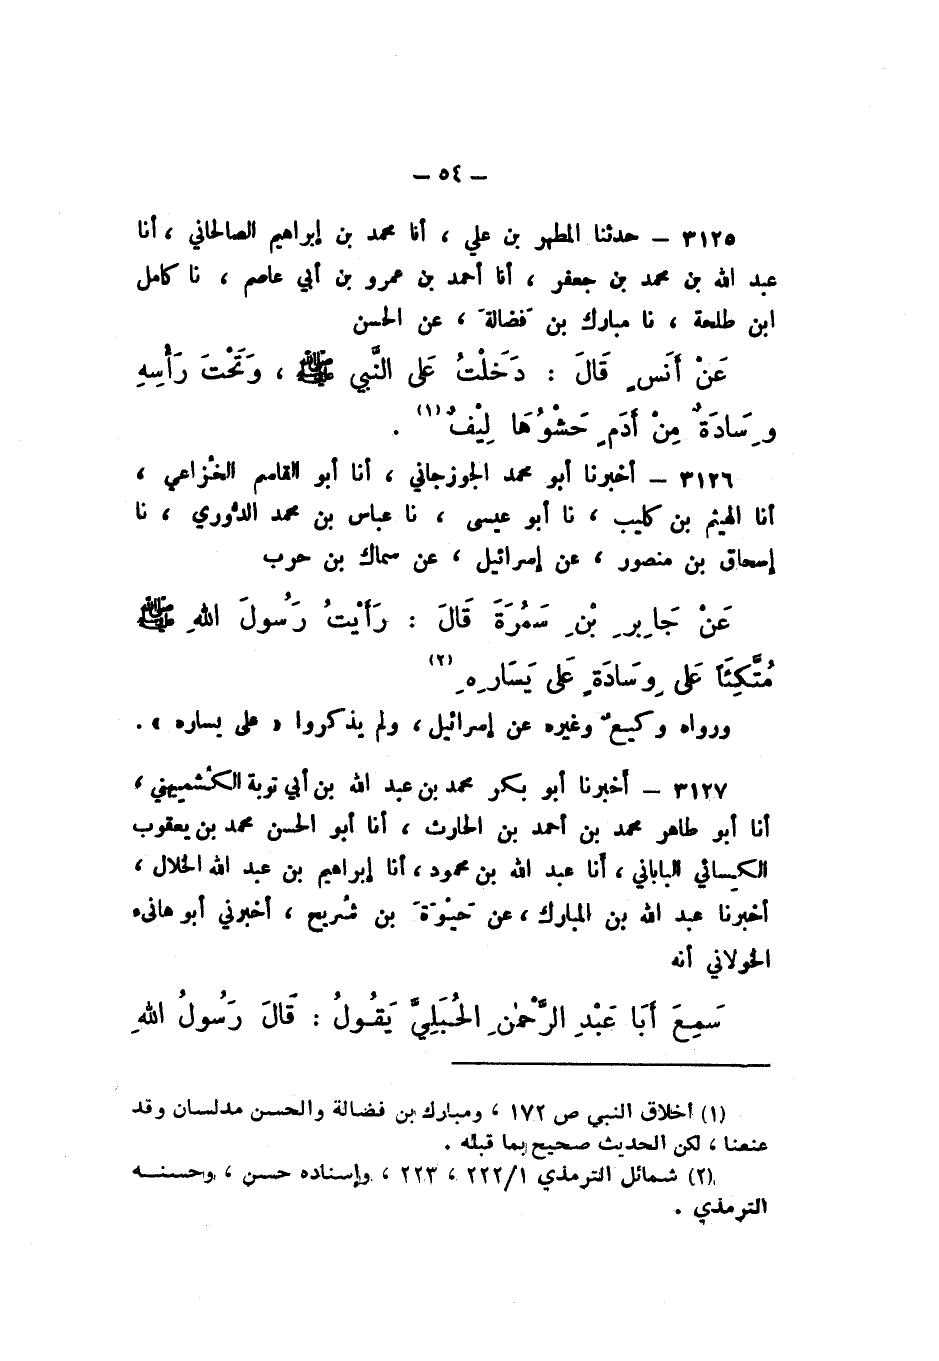 — ٥٤ —
٣١٢٥ — حدثنا المطهر بن علي ، أنا محمد بن إبراهيم الصالحاني ، أنا
عبد الله بن محمد بن جعفر ، أنا أحمد بن عمرو بن أبي عاصم ، نا كامل
ابن طلحة ، نا مبارك بن فَضالةَ ، عن الحسن
عَنْ أَنَسٍ قَالَ : دَخَلْتُ عَلى النَّبي ﷺ ، وَتَحْتَ رَأْسِهِ
وِسَادَةٌ مِنْ أَدَمٍ حَشْوُهَا لِيْفٌ (١) .
٣١٢٦ — أخبرنا أبو محمد الجوزجاني ، أنا أبو القاسم الخُزاعي ،
أنا الهيثم بن كليب ، نا أبو عيسى ، نا عباس بن محمد الدُّوري ، نا
إسحاق بن منصور ، عن إسرائيل ، عن سماك بن حرب
عَنْ جَابِرِ بْنِ سَمُرَةَ قَالَ : رَأَيْتُ رَسُولَ اللهِ ﷺ
مُتَّكِئَاً عَلى وِسَادَةٍ عَلى يَسَارِهِ (٢)
ورواه وكيعٌ وغيره عن إسرائيل ، ولم يذكروا « على يساره » .
٣١٢٧ — أخبرنا أبو بكر محمد بن عبد الله بن أبي توبة الكُشميهني ،
أنا أبو طاهر محمد بن أحمد بن الحارث ، أنا أبو الحسن محمد بن يعقوب
الكِسائي الباباني ، أنا عبد الله بن محمود ، أنا إبراهيم بن عبد الله الخلال ،
أخبرنا عبد الله بن المبارك ، عن حَيْوَةَ بن شُريح ، أخبرني أبو هانىء
الخولاني أنه
سَمِعَ أَبَا عَبْدِ الرَّحْمٰنِ الحُبَلِيَّ يَقُولُ : قَالَ رَسُولُ اللهِ
(١) أخلاق النبي ص ١٧٢ ، ومبارك بن فضالة والحسن مدلسان وقد
عنعنا ، لكن الحديث صحيح بما قبله .
(٢) شمائل الترمذي ٢٢٢/١ ، ٢٢٣ ، وإسناده حسن ، وحسنه
الترمذي .